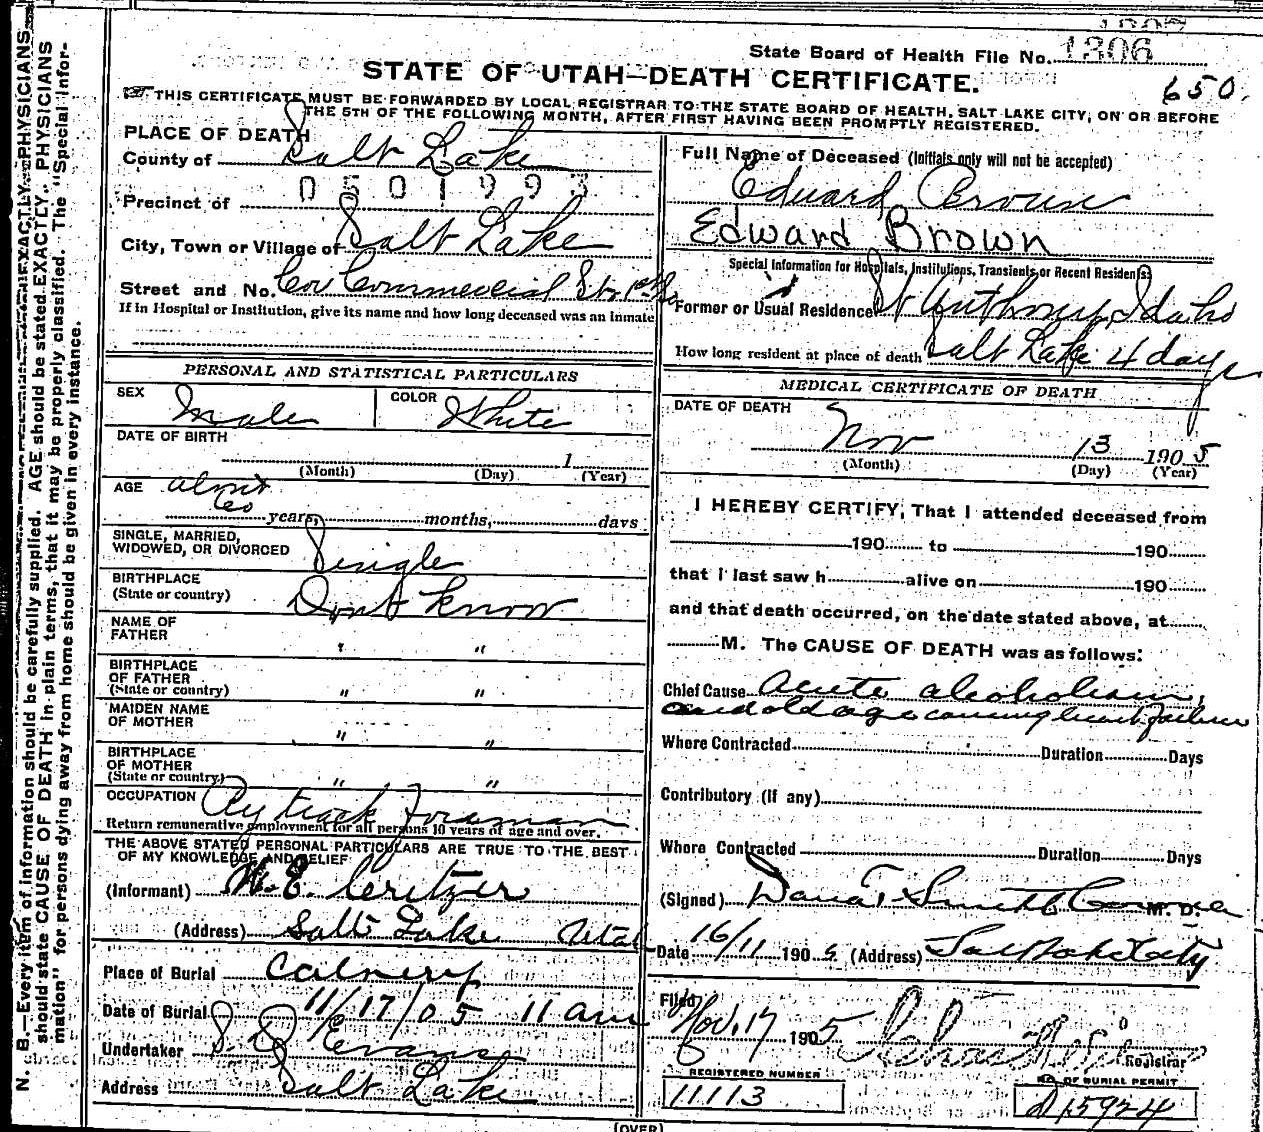 State Board of Health File No. 1306
STATE OF UTAH—DEATH CERTIFICATE.
650.
THIS CERTIFICATE MUST BE FORWARDED BY LOCAL REGISTRAR TO THE STATE BOARD OF HEALTH, SALT LAKE CITY, ON OR BEFORE
THE 5TH OF THE FOLLOWING MONTH, AFTER FIRST HAVING BEEN PROMPTLY REGISTERED.
PLACE OF DEATH
County of Salt Lake
0501993
Precinct of
City, Town or Village of Salt Lake
Street and No. Cor Commercial St & 1st So
If in Hospital or Institution, give its name and how long deceased was an inmate
PERSONAL AND STATISTICAL PARTICULARS
SEX Male COLOR White
DATE OF BIRTH
1
(Month) (Day) (Year)
AGE about
60 years, months, days
SINGLE, MARRIED,
WIDOWED, OR DIVORCED Single
BIRTHPLACE
(State or country) Dont Know
NAME OF
FATHER " "
BIRTHPLACE
OF FATHER
(State or country) " "
MAIDEN NAME
OF MOTHER " "
BIRTHPLACE
OF MOTHER
(State or country) " "
OCCUPATION Ry track Foreman
Return remunerative employment for all persons 10 years of age and over.
THE ABOVE STATED PERSONAL PARTICULARS ARE TRUE TO THE BEST
OF MY KNOWLEDGE AND BELIEF
(Informant) W. E. Critzer
(Address) Salt Lake Utah
Place of Burial Calvery
Date of Burial 11/17/05 11 am
Undertaker S. D. Evans
Address Salt Lake
Full Name of Deceased (Initials only will not be accepted)
Edward Brown
Edward Brown
Special Information for Hospitals, Institutions, Transients, or Recent Residents
Former or Usual Residence St Anthony, Idaho
How long resident at place of death Salt Lake 4 days
MEDICAL CERTIFICATE OF DEATH
DATE OF DEATH
Nov 13 1905
(Month) (Day) (Year)
I HEREBY CERTIFY, That I attended deceased from
190 to 190
that I last saw h alive on 190
and that death occurred, on the date stated above, at
M. The CAUSE OF DEATH was as follows:
Chief Cause Acute alcoholism,
and old age causing heart failure
Where Contracted Duration Days
Contributory (if any)
Where Contracted Duration Days
(Signed) Dana T Smith Coroner M. D.
Date 16/11 1905 (Address) Salt Lake City
Filed Nov. 17 1905
Registrar
REGISTERED NUMBER
11113
NO. OF BURIAL PERMIT
D15924
(OVER)
N. B.—Every item of information should be carefully supplied. AGE should be stated EXACTLY. PHYSICIANS
should state CAUSE OF DEATH in plain terms, that it may be properly classified. The "Special Infor-
mation" for persons dying away from home should be given in every instance.